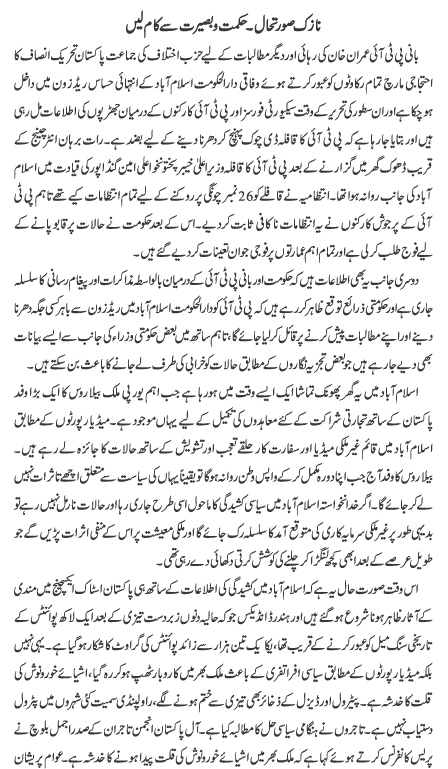 نازک صورتحال۔ حکمت و بصیرت سے کام لیں
بانی پی ٹی آئی عمران خان کی رہائی اور دیگر مطالبات کے لیے حزب اختلاف کی جماعت پاکستان تحریک انصاف کا
احتجاجی مارچ تمام رکاوٹوں کو عبور کرتے ہوئے وفاقی دارالحکومت اسلام آباد کے انتہائی حساس ریڈ زون میں داخل
ہو چکا ہے اور ان سطور کی تحریر کے وقت سیکیورٹی فورسز اور پی ٹی آئی کارکنوں کے درمیان جھڑپوں کی اطلاعات مل رہی
ہیں اور بتایا جا رہا ہے کہ پی ٹی آئی کا قافلہ ڈی چوک پہنچ کر دھرنا دینے کے لیے بضد ہے۔ رات برہان انٹر چینج کے
قریب ڈھوک گھر میں گزارنے کے بعد پی ٹی آئی کا قافلہ وزیر اعلیٰ خیبر پختونخوا علی امین گنڈاپور کی قیادت میں اسلام
آباد کی جانب روانہ ہوا تھا۔ انتظامیہ نے قافلے کو 26 نمبر چونگی پر روکنے کے لیے تمام انتظامات کیے تھے تاہم پی ٹی
آئی کے پرجوش کارکنوں نے یہ انتظامات ناکافی ثابت کر دیے۔ اس کے بعد حکومت نے حالات پر قابو پانے کے
لیے فوج طلب کر لی ہے اور تمام اہم عمارتوں پر فوجی جوان تعینات کر دیے گئے ہیں۔
دوسری جانب یہ بھی اطلاعات ہیں کہ حکومت اور بانی پی ٹی آئی کے درمیان بالواسطہ مذاکرات اور پیغام رسانی کا سلسلہ
جاری ہے اور حکومتی ذرائع توقع ظاہر کر رہے ہیں کہ پی ٹی آئی کو دارالحکومت اسلام آباد میں ریڈ زون سے باہر کسی جگہ دھرنا
دینے اور اپنے مطالبات پیش کرنے پر قائل کر لیا جائے گا، تاہم ساتھ میں بعض حکومتی وزراء کی جانب سے ایسے بیانات
بھی دیے جا رہے ہیں جو بعض تجزیہ نگاروں کے مطابق حالات کو خرابی کی طرف لے جانے کا باعث بن سکتے ہیں۔
اسلام آباد میں یہ گھر پھونک تماشا ایک ایسے وقت میں ہو رہا ہے جب اہم یورپی ملک بیلا روس کا ایک بڑا وفد
پاکستان کے ساتھ تجارتی شراکت کے کئی معاہدوں کی تکمیل کے لیے یہاں موجود ہے۔ میڈیا رپورٹوں کے مطابق
اسلام آباد میں قائم غیر ملکی میڈیا اور سفارت کار حلقے تعجب اور تشویش کے ساتھ حالات کا جائزہ لے رہے ہیں۔
بیلا روس کا وفد آج جب اپنا دورہ مکمل کر کے واپس وطن روانہ ہوگا تو یقیناً یہاں کی سیاست سے متعلق اچھے تاثرات نہیں
لے کر جائے گا۔ اگر خدانخواستہ اسلام آباد میں سیاسی کشیدگی کا ماحول اسی طرح جاری رہا اور حالات نارمل نہیں رہے تو
بدیہی طور پر غیر ملکی سرمایہ کاری کی متوقع آمد کا سلسلہ رک جائے گا اور ملکی معیشت پر اس کے منفی اثرات پڑیں گے جو
طویل عرصے کے بعد ابھی کچھ لنگڑا کر چلنے کی کوشش کرتی دکھائی دے رہی تھی۔
اس وقت صورت حال یہ ہے کہ اسلام آباد میں کشیدگی کی اطلاعات کے ساتھ ہی پاکستان اسٹاک ایکسچینج میں مندی
کے آثار ظاہر ہونا شروع ہو گئے ہیں اور ہنڈرڈ انڈیکس جو کہ حالیہ دنوں زبردست تیزی کے بعد ایک لاکھ پوائنٹس کے
تاریخی سنگ میل کو عبور کرنے کے قریب تھا، یکا یک تین ہزار سے زائد پوائنٹس کی گراوٹ کا شکار ہو گیا ہے۔ یہی نہیں
بلکہ میڈیا رپورٹوں کے مطابق سیاسی افراتفری کے باعث ملک بھر میں کاروبار ٹھپ ہو کر رہ گیا، اشیائے خورونوش کی
قلت کا خدشہ ہے۔ پیٹرول اور ڈیزل کے ذخائر بھی تیزی سے ختم ہونے لگے، راولپنڈی سمیت کئی شہروں میں پٹرول
دستیاب نہیں ہے۔ تاجروں نے ہنگامی سیاسی حل کا مطالبہ کیا ہے۔ آل پاکستان انجمن تاجران کے صدر اجمل بلوچ نے
پریس کانفرنس کرتے ہوئے کہا ہے کہ ملک بھر میں اشیائے خورونوش کی قلت پیدا ہونے کا خدشہ ہے۔ عوام پریشان